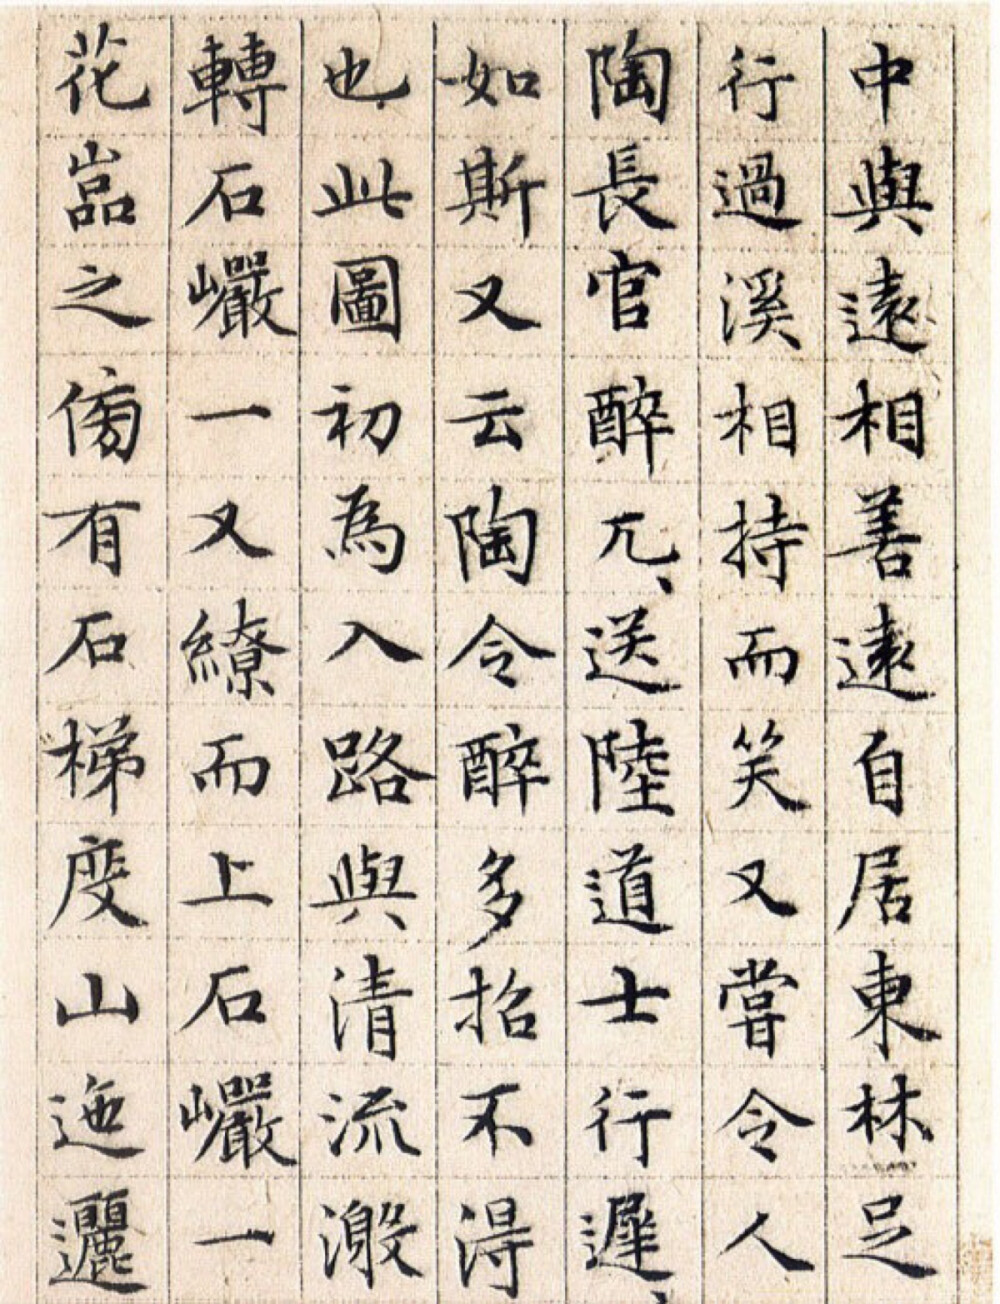 中與遠相善遠自居東林足
行過溪相持而笑又嘗令人
陶長官醉兀、送陸道士行遲、
如斯又云陶令醉多招不淂
也此圖初為入路與清流激
轉石巗一又繚而上石巗一
花嵓之傍有石梯度山迤邐